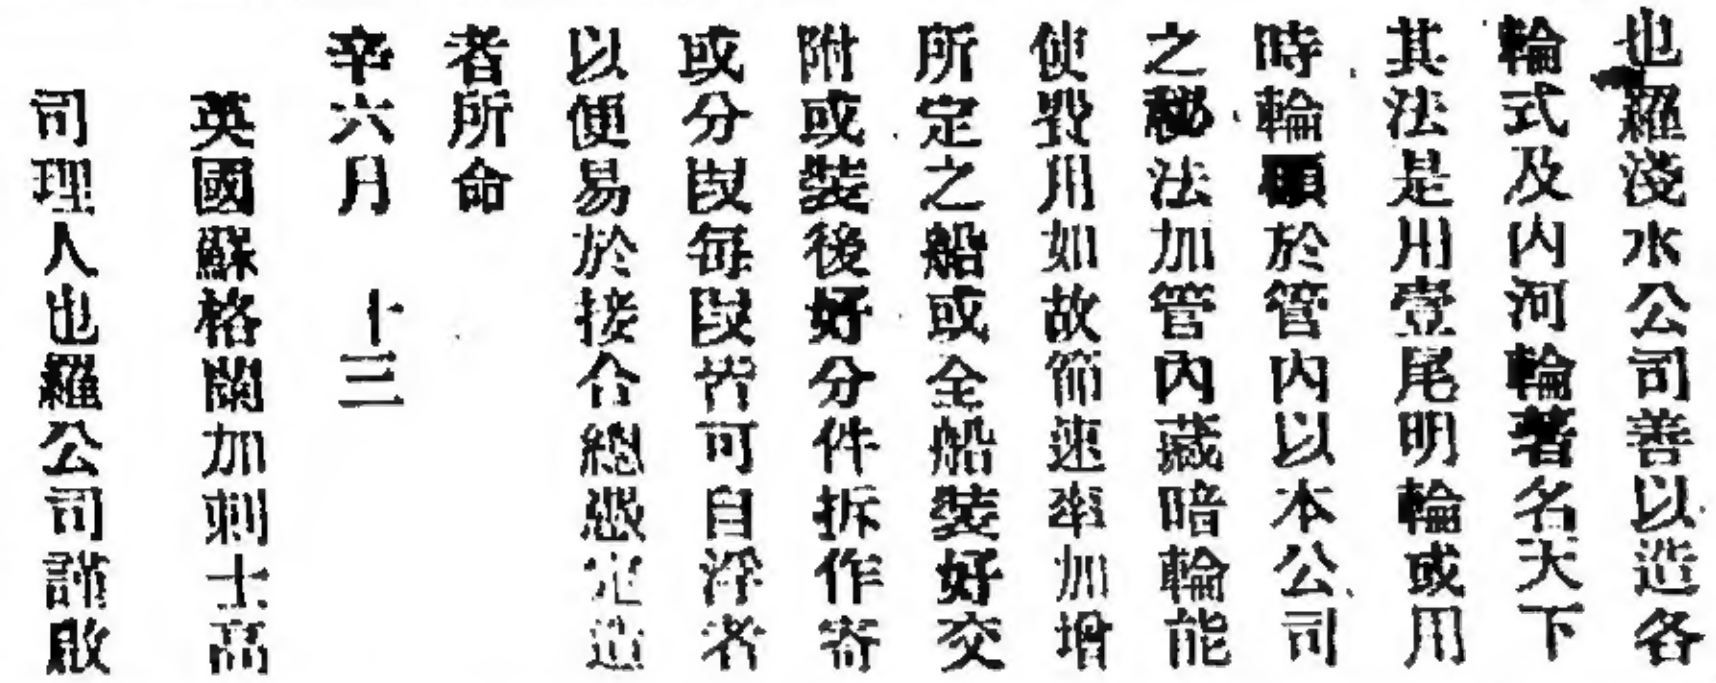 也羅淺水公司善以造各
輪式及内河輪著名天下
其法是用壹尾明輪或用
時輪頤於管内以本公司
之秘法加管內藏暗輪能
使毀用如故節速率加增
所定之船或全船裝好交
附或裝後好分件拆作寄
或分段每段皆可自浮者
以便易於接合總憑定造
者所命
辛六月 十三
英國蘇格闌加刺士高
司理人也羅公司謹啟